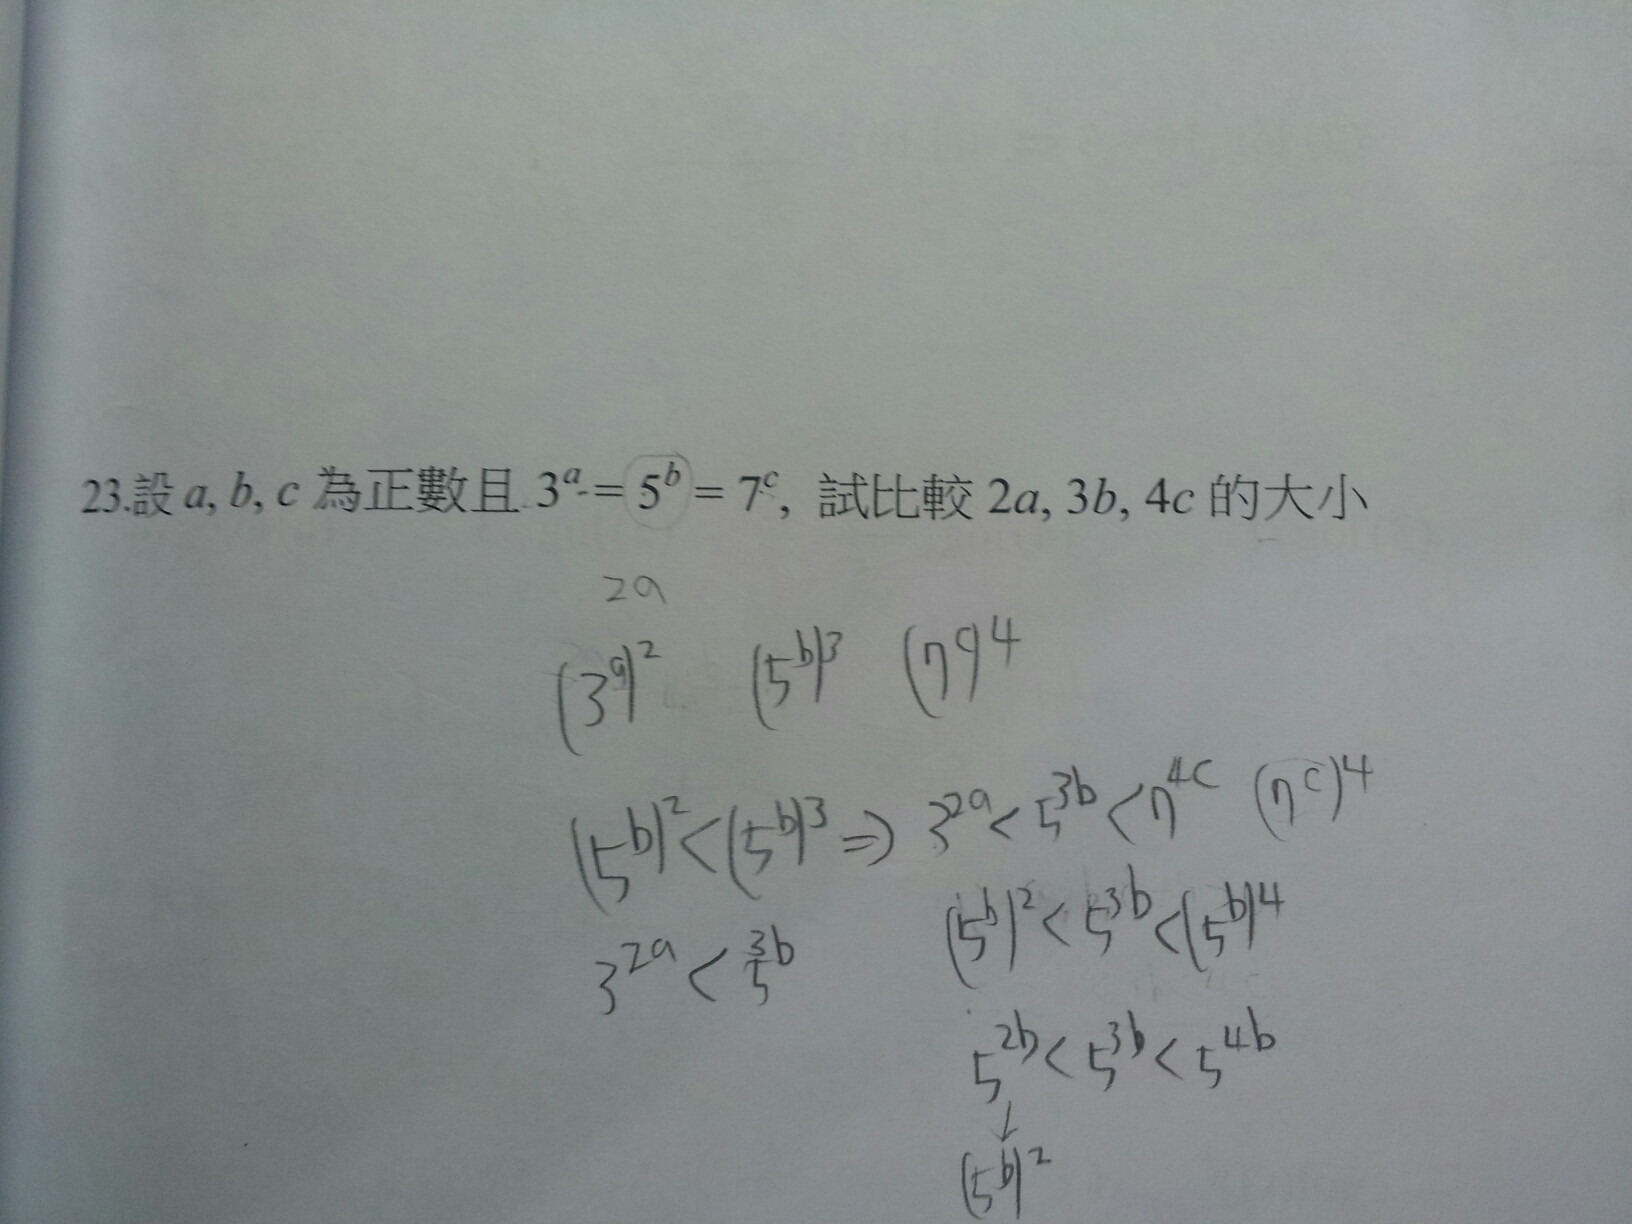 23.設 a, b, c 為正數且 3ᵃ = 5ᵇ = 7ᶜ, 試比較 2a, 3b, 4c 的大小
2a
(3ᵃ)² (5ᵇ)³ (7ᶜ)⁴
(5ᵇ)² < (5ᵇ)³ ⇒ 3²ᵃ < 5³ᵇ < 7⁴ᶜ (7ᶜ)⁴
(5ᵇ)² < 5³ᵇ < (5ᵇ)⁴
3²ᵃ < 5³ᵇ
5²ᵇ < 5³ᵇ < 5⁴ᵇ
↓
(5ᵇ)²